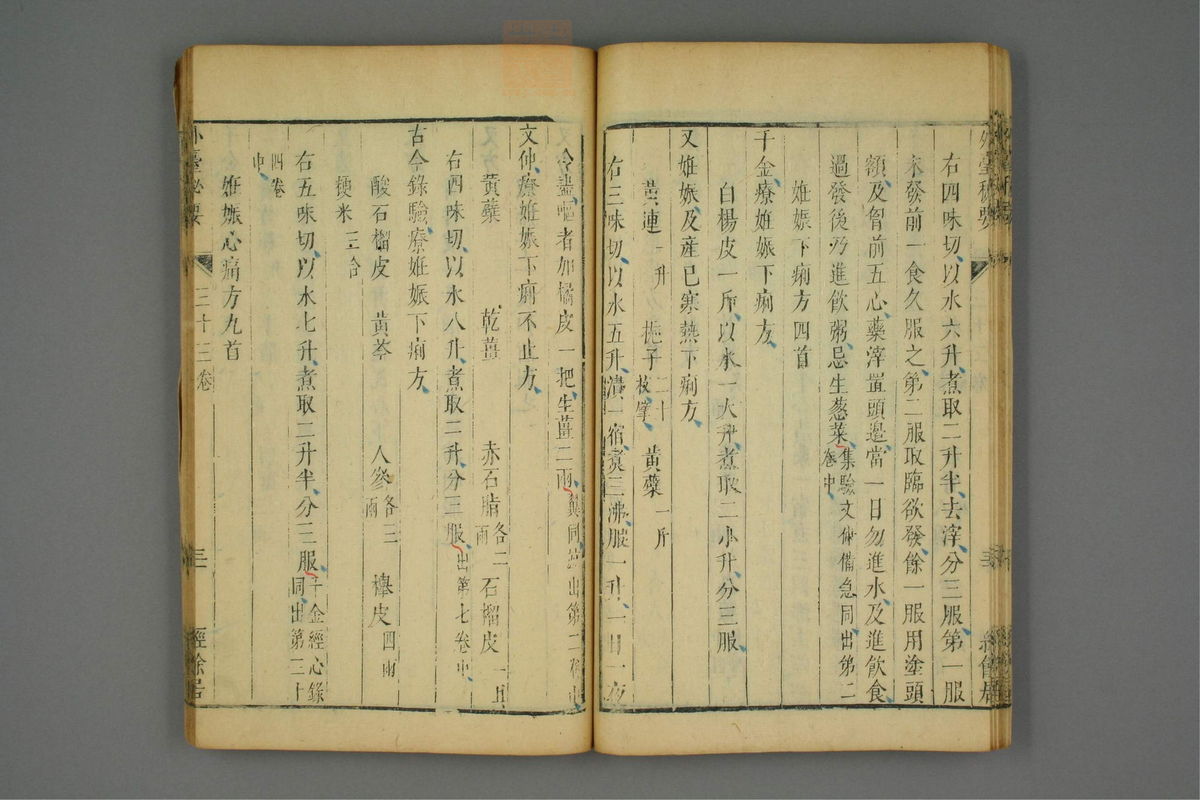 右四味切以水六升煮取二升半去滓分三服第一服
未發前一食久服之第二服取臨欲發餘一服用塗頭
額及胷前五心藥滓置頭邊當一日勿進水及進飲食
過發後乃進飲粥忌生葱菜集驗文仲備急同出第二
卷中
姙娠下痢方四首
千金療姙娠下痢方
白楊皮一斤以水一大升煮取二小升分三服
又姙娠及産已寒熱下痢方
黃連一升 梔子二十枚擘 黃蘗一斤
右三味切以水五升漬一宿煮三沸服一升一日一夜
令盡嘔者加橘皮一把生薑二兩集同並出第二卷中
文仲療姙娠下痢不止方
黃蘗 乾薑 赤石脂各二兩 石榴皮一具
右四味切以水八升煮取二升分三服出第七卷中
古今錄驗療姙娠下痢方
酸石榴皮 黃芩 人參各三兩 櫸皮四兩
粳米三合
右五味切以水七升煮取二升半分三服千金經心錄
同出第二十
四卷
中
姙娠心痛方九首
外臺秘要
三十三卷
三
經餘居